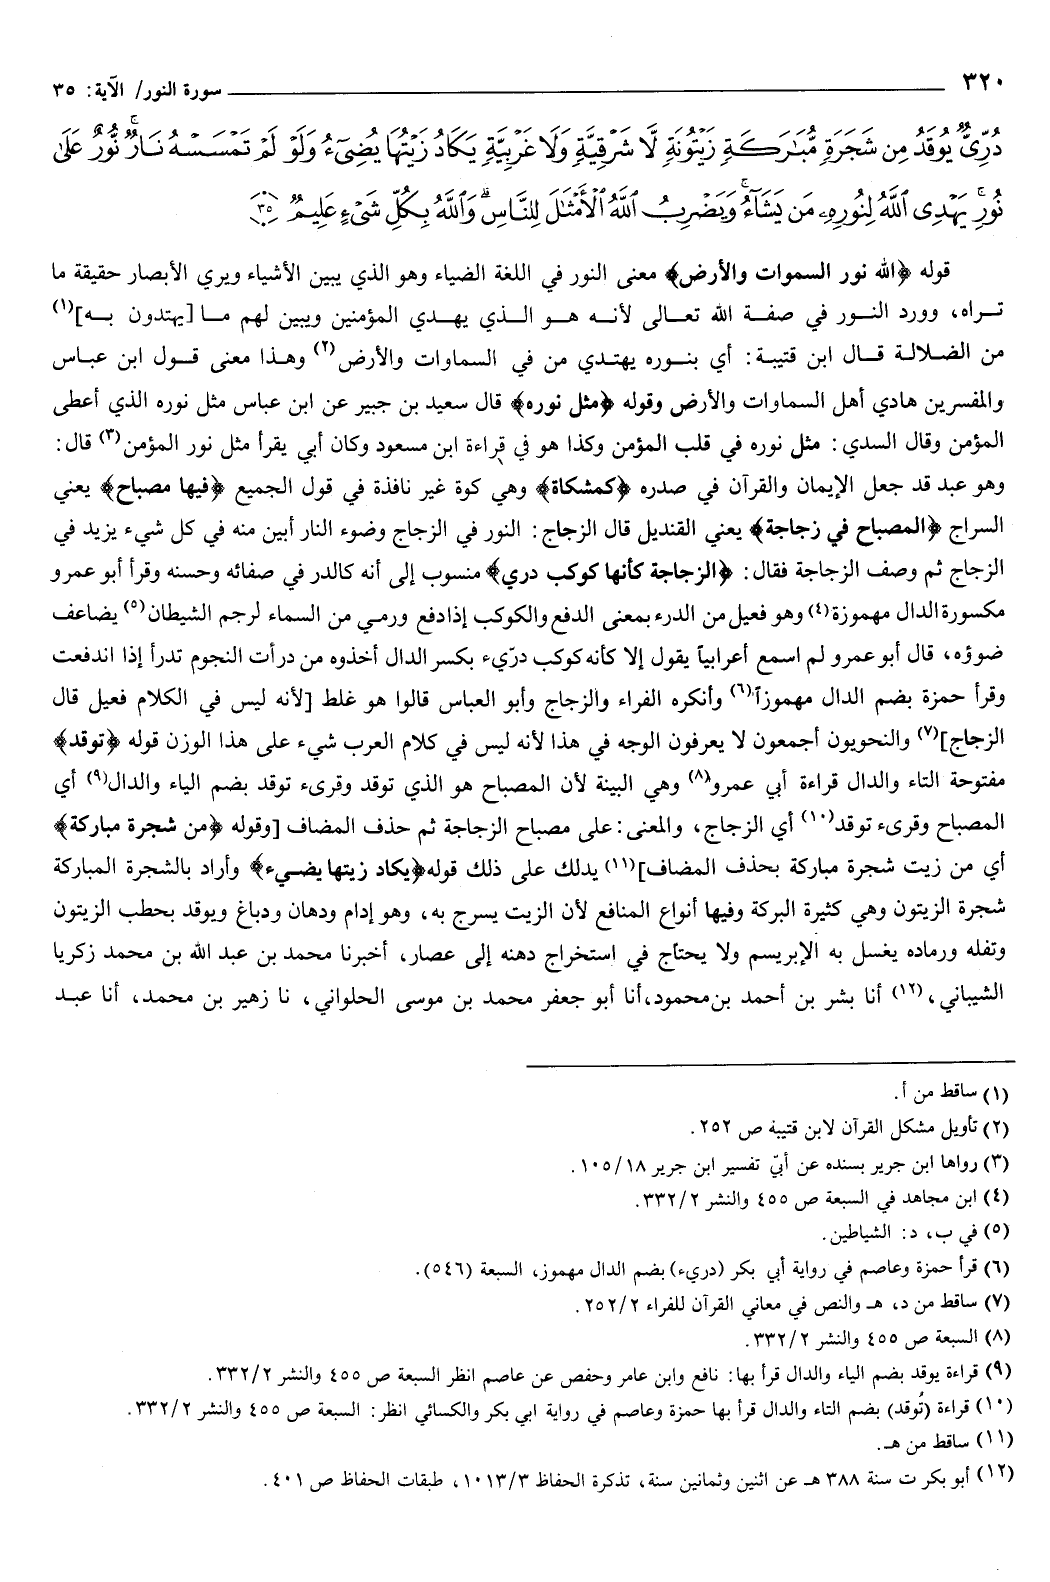 ٣٢٠ سورة النور/ الآية: ٣٥
دُرِّيٌّ يُوقَدُ مِن شَجَرَةٍ مُّبَٰرَكَةٍ زَيْتُونَةٍ لَّا شَرْقِيَّةٍ وَلَا غَرْبِيَّةٍ يَكَادُ زَيْتُهَا يُضِيٓءُ وَلَوْ لَمْ تَمْسَسْهُ نَارٌ ۚ نُّورٌ عَلَىٰ
نُورٍ ۗ يَهْدِى ٱللَّهُ لِنُورِهِۦ مَن يَشَآءُ ۚ وَيَضْرِبُ ٱللَّهُ ٱلْأَمْثَٰلَ لِلنَّاسِ ۗ وَٱللَّهُ بِكُلِّ شَىْءٍ عَلِيمٌ ﴿٣٥﴾
قوله ﴿الله نور السموات والأرض﴾ معنى النور في اللغة الضياء وهو الذي يبين الأشياء ويري الأبصار حقيقة ما
تراه، وورد النور في صفة الله تعالى لأنه هو الذي يهدي المؤمنين ويبين لهم ما [يهتدون به](١)
من الضلالة قال ابن قتيبة: أي بنوره يهتدي من في السماوات والأرض(٢) وهذا معنى قول ابن عباس
والمفسرين هادي أهل السماوات والأرض وقوله ﴿مثل نوره﴾ قال سعيد بن جبير عن ابن عباس مثل نوره الذي أعطى
المؤمن وقال السدي: مثل نوره في قلب المؤمن وكذا هو في قراءة ابن مسعود وكان أبي يقرأ مثل نور المؤمن(٣) قال:
وهو عبد قد جعل الإيمان والقرآن في صدره ﴿كمشكاة﴾ وهي كوة غير نافذة في قول الجميع ﴿فيها مصباح﴾ يعني
السراج ﴿المصباح في زجاجة﴾ يعني القنديل قال الزجاج: النور في الزجاج وضوء النار أبين منه في كل شيء يزيد في
الزجاج ثم وصف الزجاجة فقال: ﴿الزجاجة كأنها كوكب دري﴾ منسوب إلى أنه كالدر في صفائه وحسنه وقرأ أبو عمرو
مكسورة الدال مهموزة(٤) وهو فعيل من الدرء بمعنى الدفع والكوكب إذا دفع ورمي من السماء لرجم الشيطان(٥) يضاعف
ضوؤه، قال أبو عمرو لم اسمع أعرابياً يقول إلا كأنه كوكب درّيء بكسر الدال أخذوه من درأت النجوم تدرأ إذا اندفعت
وقرأ حمزة بضم الدال مهموزاً(٦) وأنكره الفراء والزجاج وأبو العباس قالوا هو غلط [لأنه ليس في الكلام فعيل قال
الزجاج](٧) والنحويون أجمعون لا يعرفون الوجه في هذا لأنه ليس في كلام العرب شيء على هذا الوزن قوله ﴿توقد﴾
مفتوحة التاء والدال قراءة أبي عمرو(٨) وهي البينة لأن المصباح هو الذي توقد وقرىء توقد بضم الياء والدال(٩) أي
المصباح وقرىء توقد(١٠) أي الزجاج، والمعنى: على مصباح الزجاجة ثم حذف المضاف [وقوله ﴿من شجرة مباركة﴾
أي من زيت شجرة مباركة بحذف المضاف](١١) يدلك على ذلك قوله ﴿يكاد زيتها يضيء﴾ وأراد بالشجرة المباركة
شجرة الزيتون وهي كثيرة البركة وفيها أنواع المنافع لأن الزيت يسرج به، وهو إدام ودهان ودباغ ويوقد بحطب الزيتون
وتفله ورماده يغسل به الإبريسم ولا يحتاج في استخراج دهنه إلى عصار، أخبرنا محمد بن عبد الله بن محمد زكريا
الشيباني،(١٢) أنا بشر بن أحمد بن محمود، أنا أبو جعفر محمد بن موسى الحلواني، نا زهير بن محمد، أنا عبد
(١) ساقط من أ.
(٢) تأويل مشكل القرآن لابن قتيبة ص ٢٥٢.
(٣) رواها ابن جرير بسنده عن أبيّ تفسير ابن جرير ١٠٥/١٨.
(٤) ابن مجاهد في السبعة ص ٤٥٥ والنشر ٣٣٢/٢.
(٥) في ب، د: الشياطين.
(٦) قرأ حمزة وعاصم في رواية أبي بكر (دريء) بضم الدال مهموز، السبعة (٥٤٦).
(٧) ساقط من د، هـ والنص في معاني القرآن للفراء ٢٥٢/٢.
(٨) السبعة ص ٤٥٥ والنشر ٣٣٢/٢.
(٩) قراءة يوقد بضم الياء والدال قرأ بها: نافع وابن عامر وحفص عن عاصم انظر السبعة ص ٤٥٥ والنشر ٣٣٢/٢.
(١٠) قراءة (تُوقد) بضم التاء والدال قرأ بها حمزة وعاصم في رواية ابي بكر والكسائي انظر: السبعة ص ٤٥٥ والنشر ٣٣٢/٢.
(١١) ساقط من هـ.
(١٢) أبو بكر ت سنة ٣٨٨ هـ عن اثنين وثمانين سنة، تذكرة الحفاظ ١٠١٣/٣، طبقات الحفاظ ص ٤٠١.